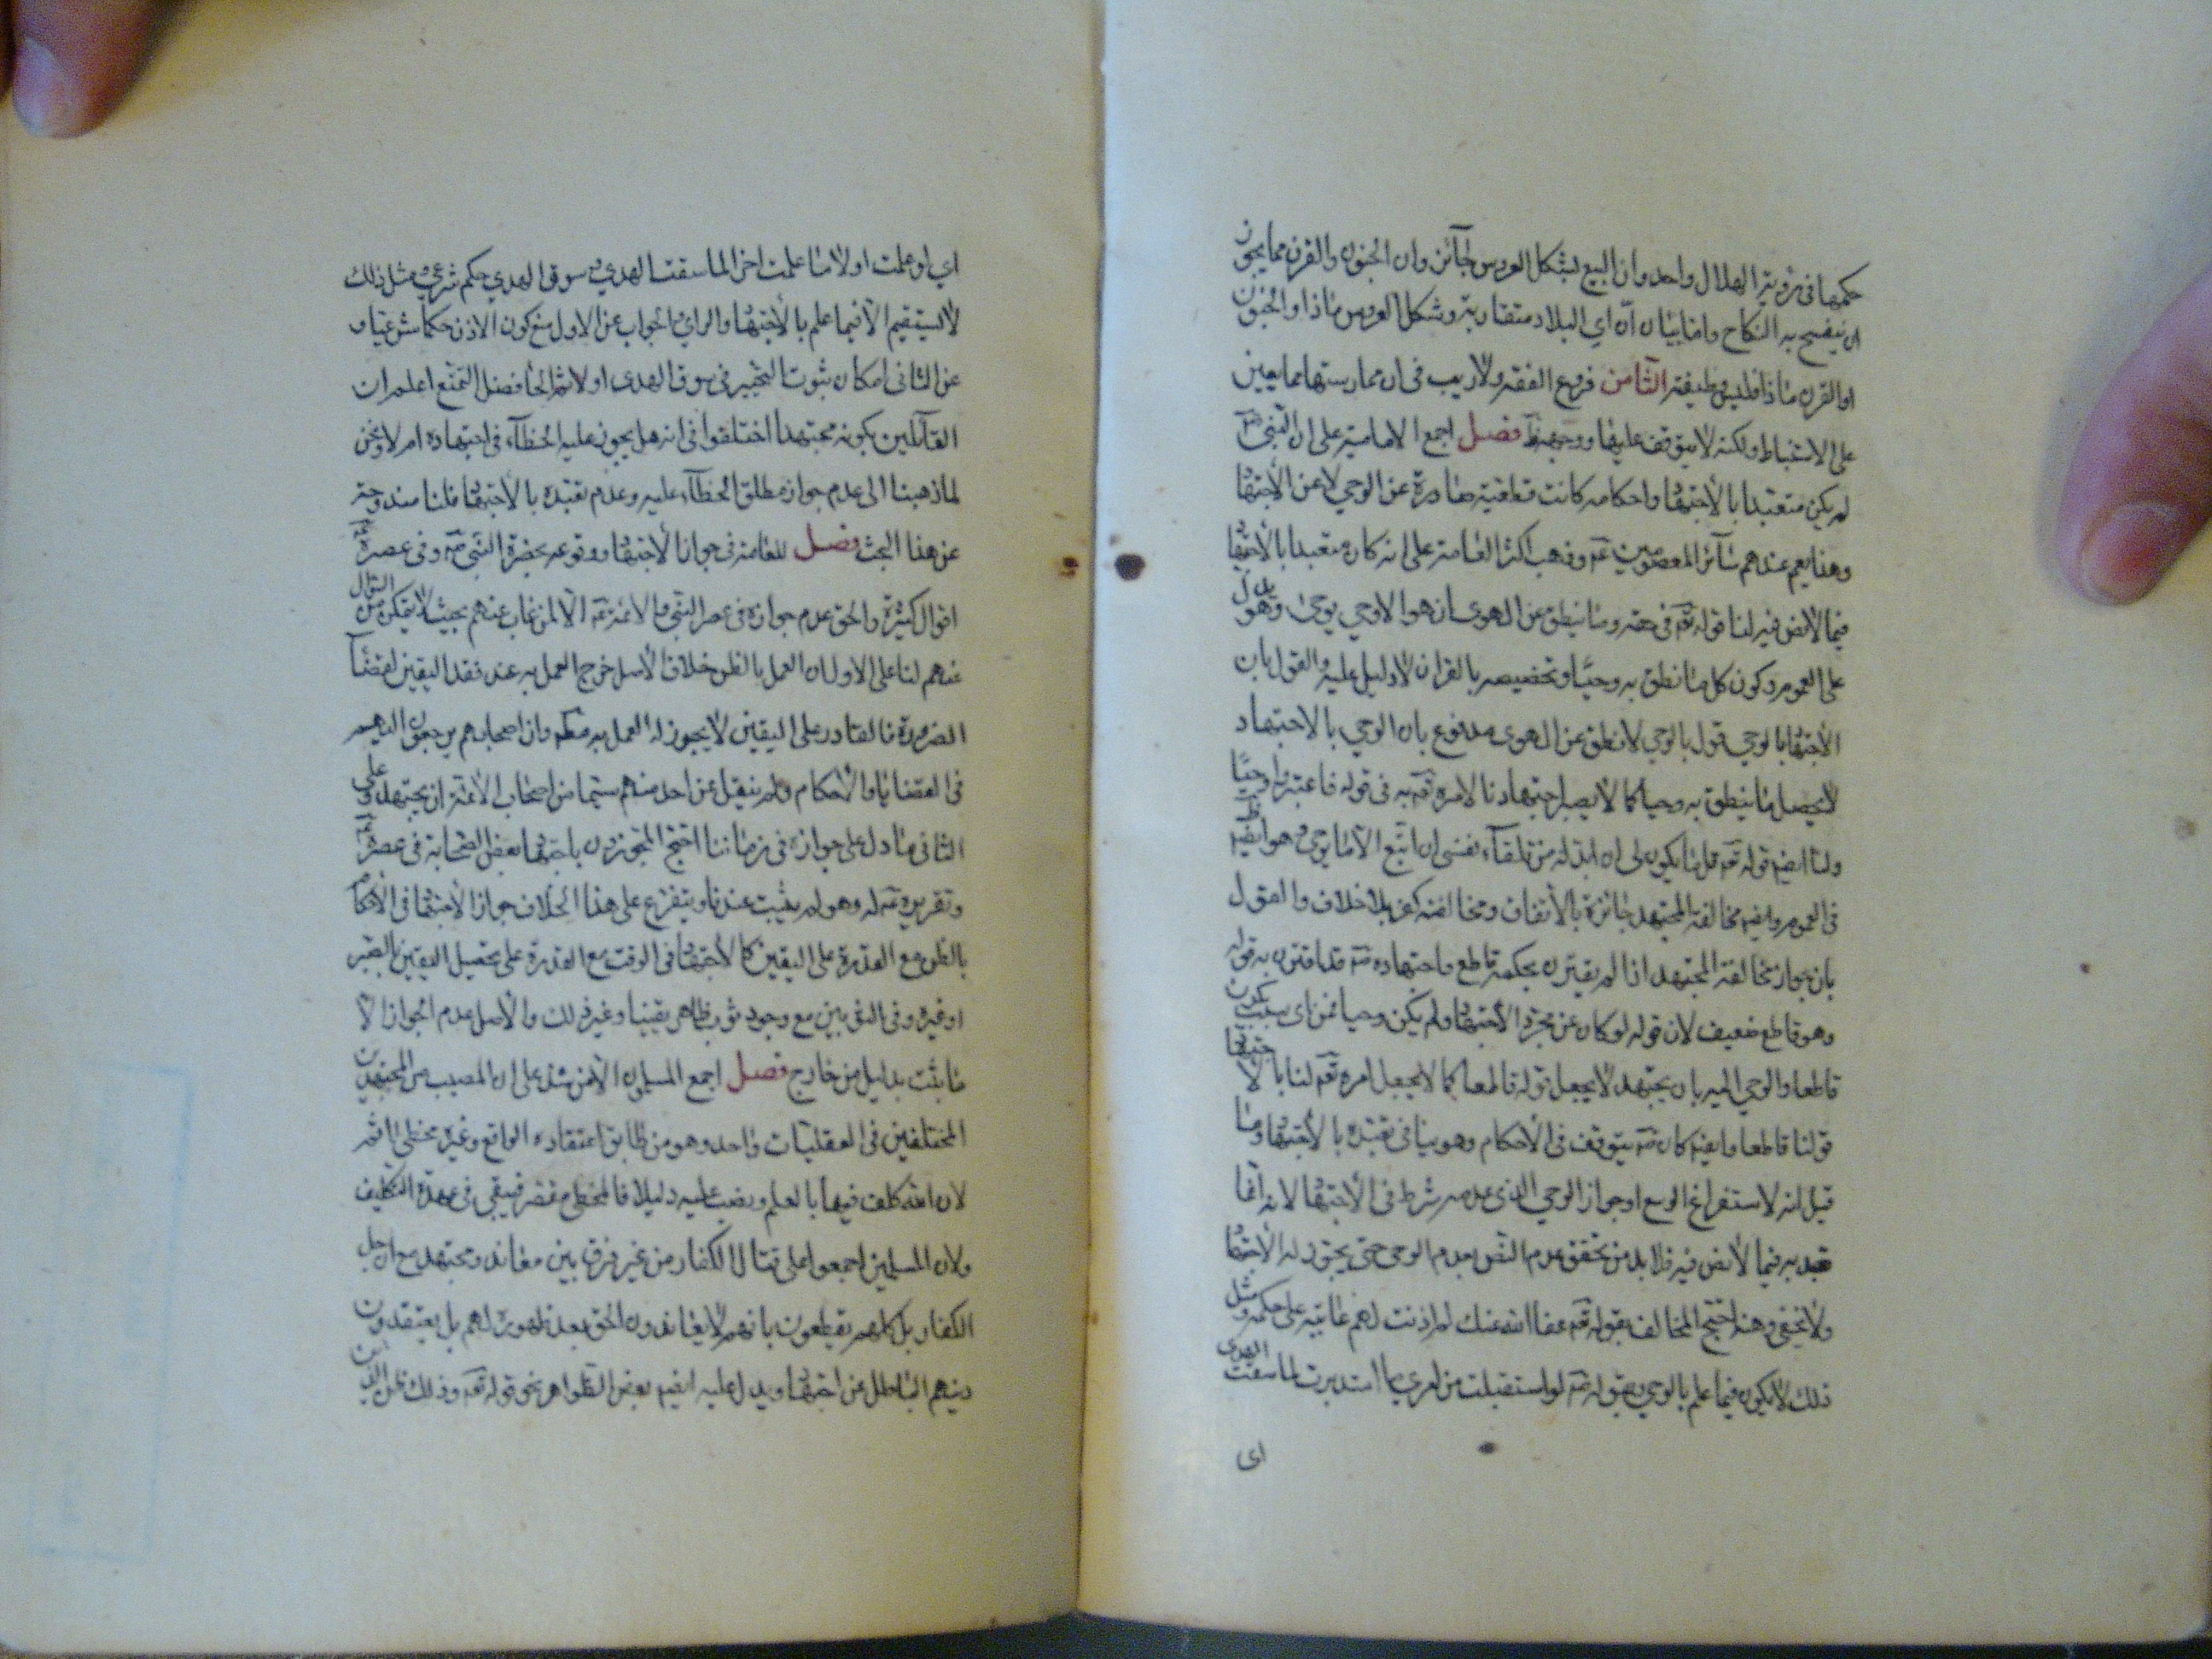 حكمها فى رؤية الهلال واحد وان البيع بشكل العروس جائز وان الجنون والقرن مما يجوز
ان يفسخ به النكاح واما بيان انه اي البلاد متقاربة وشكل العروس ماذا والجنون
او القرن ماذا فليس وظيفته الثامن فروع الفقه ولا ريب فى ان ممارستها مما يعين
على الاستنباط ولكنه لا يتوقف عليها ووجهه ظ فصل اجمع الامامية على ان النبى ص
لم يكن متعبدا بالاجتهاد واحكامه كانت قطعية صادرة عن الوحي لا عن الاجتهاد
وهذا يعم عندهم سائر المعصومين ع وذهب اكثر العامة على انه كان متعبدا بالاجتهاد
فيما لا نص فيه لنا قوله تع فى حقه وما ينطق عن الهوى ان هو الا وحي يوحى وهو يدل
على العموم وكون كل ما نطق به وحيا وتخصيصه بالقران لا دليل عليه والقول بان
الاجتهاد بالوحي قول بالوحي لا نطق عن الهوى مدفوع بان الوحي بالاجتهاد
لا يجعل ما ينطق به وحيا كما لا يصير اجتهادنا لامره تع به فى قوله فاعتبروا وحيا
ولنا ايضا قوله تع قل ما يكون لى ان ابدله من تلقاء نفسى ان اتبع الا ما يوحى وهو ايضا ظ
فى العموم وايضا مخالفة المجتهد جائزة بالاتفاق ومخالفته كفر بلا خلاف والقول
بان جواز مخالفة المجتهد اذا لم يقترن بحكمه قاطع واجتهاده ص قد اقترن به قوله
وهو قاطع ضعيف لان قوله لو كان عن مجرد الاجتهاد ولم يكن وحيا فمن اى سبب يكون
قاطعا والوحي اليه بان يجتهد لا يجعل قوله قاطعا كما لا يجعل امره تع لنا بالاجتهاد
قولنا قاطعا وايضا كان ص يتوقف فى الاحكام وهو ينافى تعبده بالاجتهاد وما
قيل انه لاستفراغ الوسع او جواز الوحي الذى عدمه شرط فى الاجتهاد لانه انما
تعبد به فيما لا نص فيه فلا بد من تحقق عدم النص بعدم الوحي حتى يجوز له الاجتهاد
ولا يخفى وهنه احتج المخالف بقوله تع عفا الله عنك لم اذنت لهم عاتبه على حكمه ومثل
ذلك لا يكون فيما علم بالوحي وبقوله ص لو استقبلت من امري ما استدبرت لما سقت الهدى
اى
اي لو علمت اولا ما علمت اخرا لما سقت الهدي وسوق الهدي حكم شرعي ومثل ذلك
لا يستقيم الا فيما علم بالاجتهاد والراي والجواب عن الاول منع كون الاذن حكما شرعيا و
عن الثانى امكان ثبوت التخيير فى سوق الهدى اولا ثم الحا فضل التمتع اعلم ان
القائلين بكونه مجتهدا اختلفوا فى انه هل يجوز عليه الخطاء فى اجتهاده ام لا ونحن
لما ذهبنا الى عدم جواز مطلق الخطاء عليه وعدم تعبده بالاجتهاد فلنا مندوحة
عن هذا البحث فصل للعامة فى جواز الاجتهاد ووقوعه بحضرة النبى ص وفى عصره
اقوال كثيرة والحق عدم جوازه فى عصر النبى والائمة ع الا لمن غاب عنهم بحيث لا يتمكن من السؤال
عنهم لنا على الاول ان العمل بالظن خلاف الاصل خرج العمل به عند فقد اليقين لقضاء
الضرورة فالقادر على اليقين لا يجوز له العمل به وان اصحابهم يرجعون اليهم
فى القضايا والاحكام ولم ينقل عن احد منهم سيما من اصحاب الائمة ان يجتهد وعلى
الثانى ما دل على جوازه فى زماننا احتج المجوزون باجتهاد بعض الصحابة فى عصره
وتقريره ص له وهو لم يثبت عندنا ويتفرع على هذا الخلاف جواز الاجتهاد فى الاحكام
بالظن مع القدرة على اليقين كالاجتهاد فى الوقت مع القدرة على تحصيل اليقين بالصبر
او غيره وفى الثوبين مع وجود ثوب طاهر يقينا وغير ذلك والاصل عدم الجواز الا
ما يثبت بدليل من خارج فصل اجمع المسلمون الا من شذ على ان المصيب من المجتهدين
المختلفين فى العقليات واحد وهو من طابق اعتقاده الواقع وغيره مخطئ اثم
لان الله كلف فيها بالعلم ونصب عليه دليلا فالمخطئ مقصر فيبقى فى عهدة التكليف
ولان المسلمين اجمعوا على قتال الكفار من غير فرق بين معاند ومجتهد مع ان جل
الكفار بل كلهم يقطعون بانهم لا يعاندون الحق بعد ظهوره لهم بل يعتقدون
دينهم الباطل عن اجتهاد ويدل عليه ايضا بعض الظواهر نحو قوله تع وذلك ظن الذين